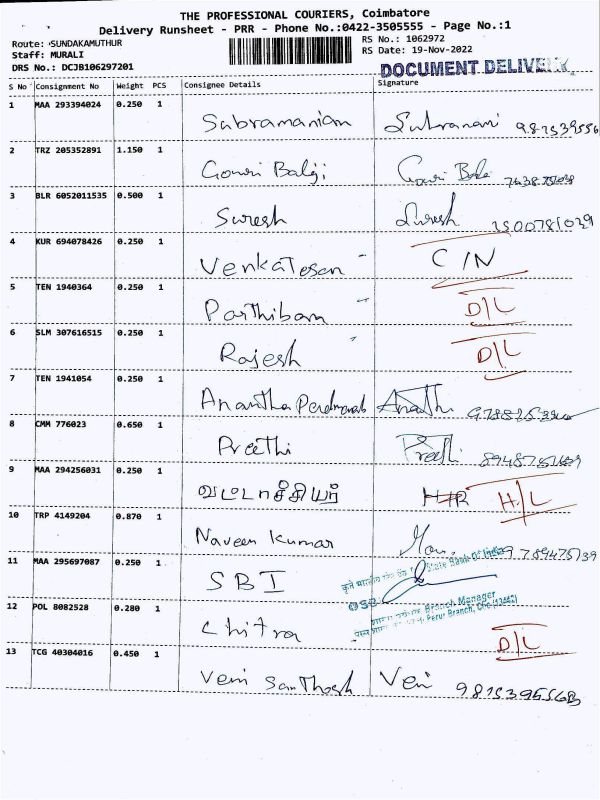 THE PROFESSIONAL COURIERS, Coimbatore
Delivery Runsheet - PRR - Phone No.:0422-3505555 - Page No.:1
Route: SUNDAKAMUTHUR
Staff: MURALI
DRS No.: DCJB106297201
RS No.: 1062972
RS Date: 19-Nov-2022
DOCUMENT DELIVERY
S No Consignment No Weight PCS Consignee Details Signature
1 MAA 293394024 0.250 1 Sabramanian
2 TRZ 205352891 1.150 1 Gowri Balji Gowri
3 BLR 6052011535 0.500 1 Suresh Suresh
4 KUR 694078426 0.250 1 Venkatesan C/N
5 TEN 1940364 0.250 1 Parthiban D/L
6 SLM 307616515 0.250 1 Rajesh D/L
7 TEN 1941054 0.250 1 Anantha
8 CMM 776023 0.650 1 Preethi
9 MAA 294256031 0.250 1 H/L
10 TRP 4149204 0.870 1 Naveen Kumar
11 MAA 295697087 0.250 1 SBI
State Bank Of India
Branch Manager
Perur Branch,
12 POL 8082528 0.280 1 Chitra D/L
13 TCG 40304016 0.450 1 Veni Santhosh Veni